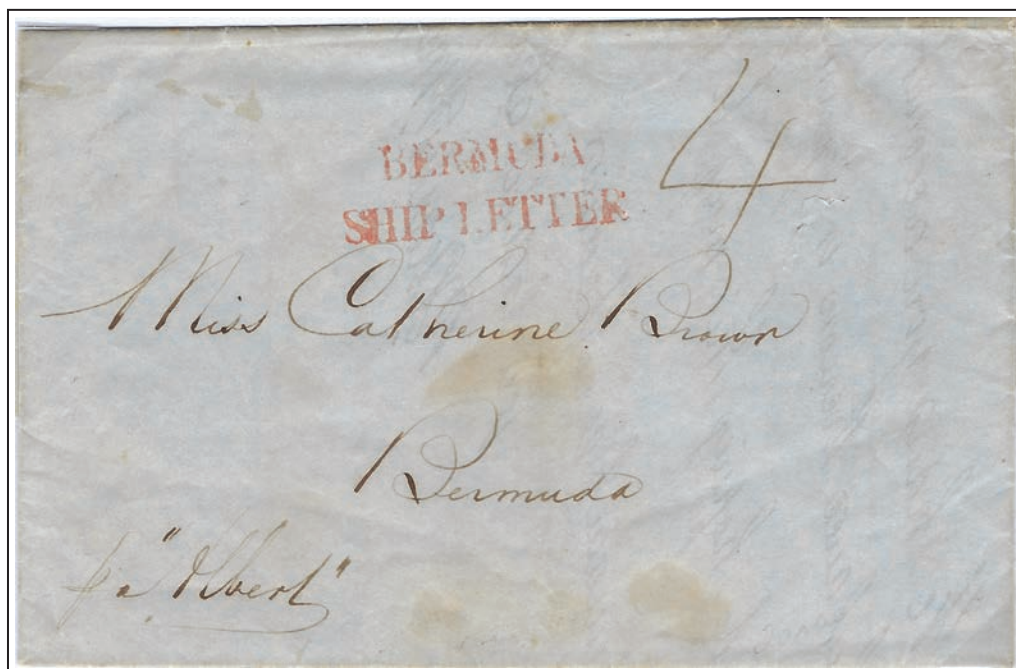 4
BERMUDA
SHIP LETTER
Miss Catherine Brown
Bermuda
pr "Albert"